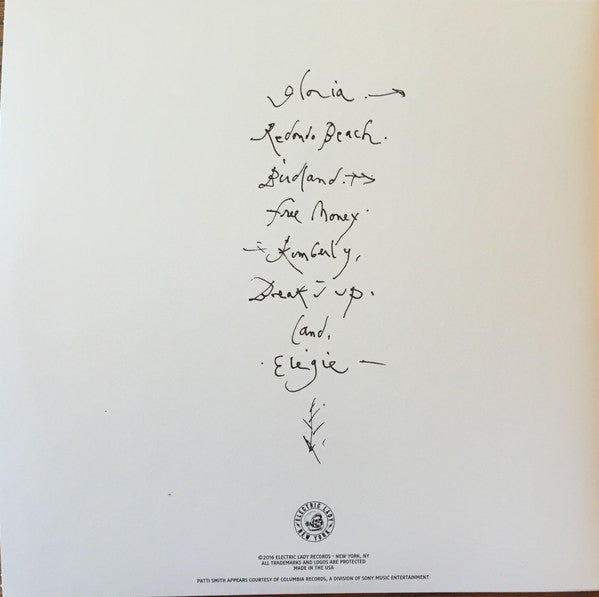 Gloria.
Redondo Beach.
Birdland.
free Money.
Kimberly,
Break it up.
Land,
Elegie
ELECTRIC LADY
NEW YORK
©2016 ELECTRIC LADY RECORDS - NEW YORK, NY
ALL TRADEMARKS AND LOGOS ARE PROTECTED
MADE IN THE USA
PATTI SMITH APPEARS COURTESY OF COLUMBIA RECORDS, A DIVISION OF SONY MUSIC ENTERTAINMENT